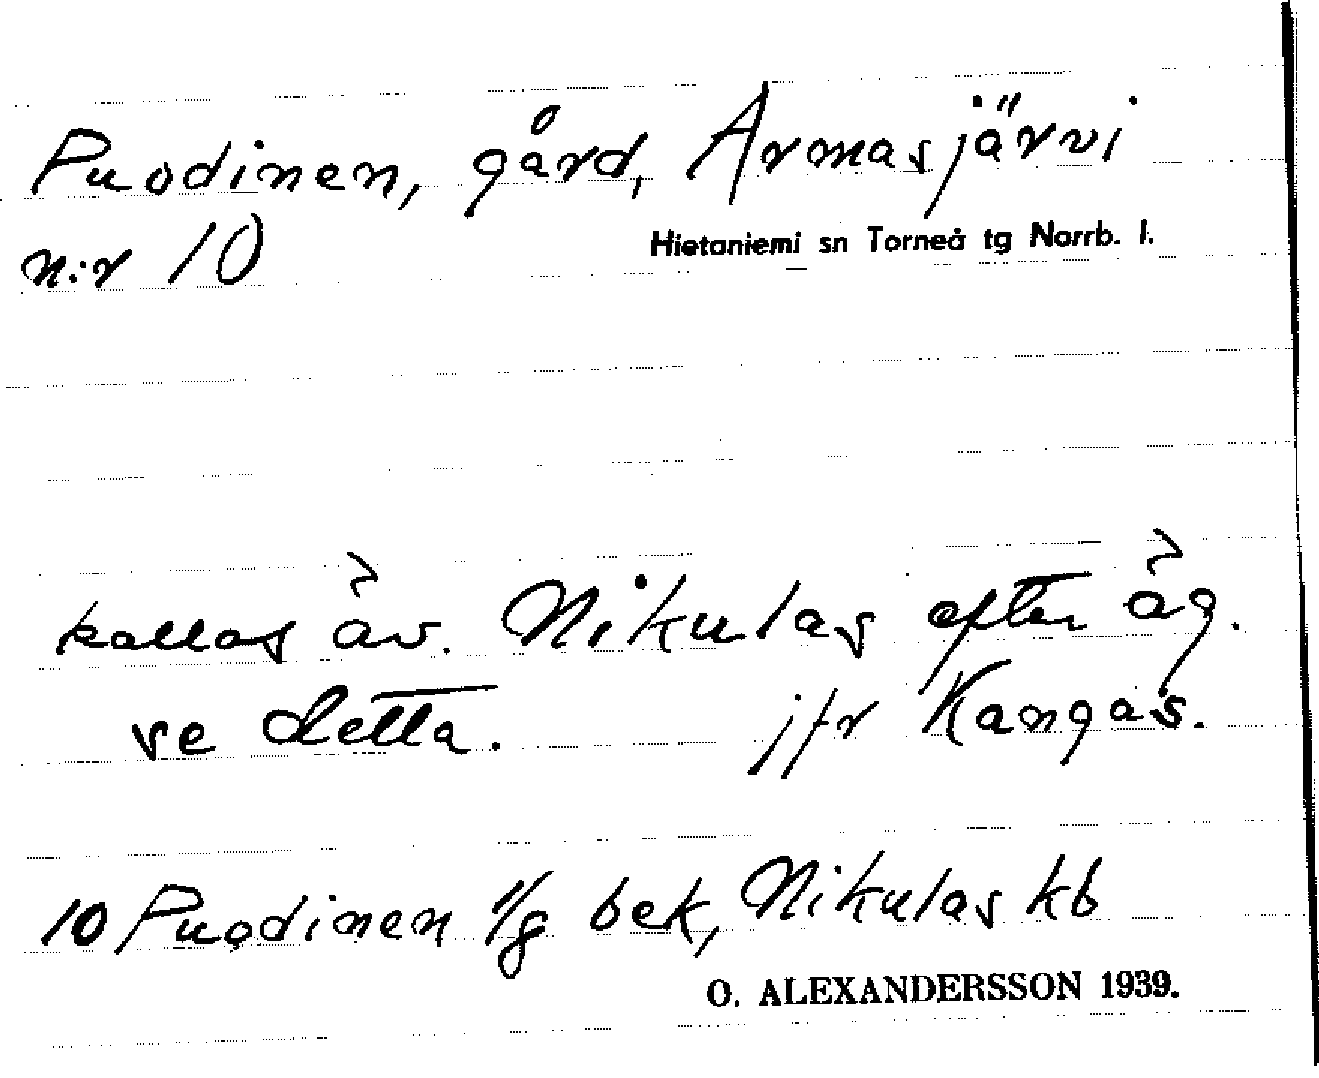 Puodinen, gård, Armasjärvi
n:r 10
Hietaniemi sn Torneå tg Norrb. l.
kallas äv. Nikulas efter äg.
se detta. jfr Kangas.
10 Puodinen 1/g bek, Nikulas kb
O. ALEXANDERSSON 1939.